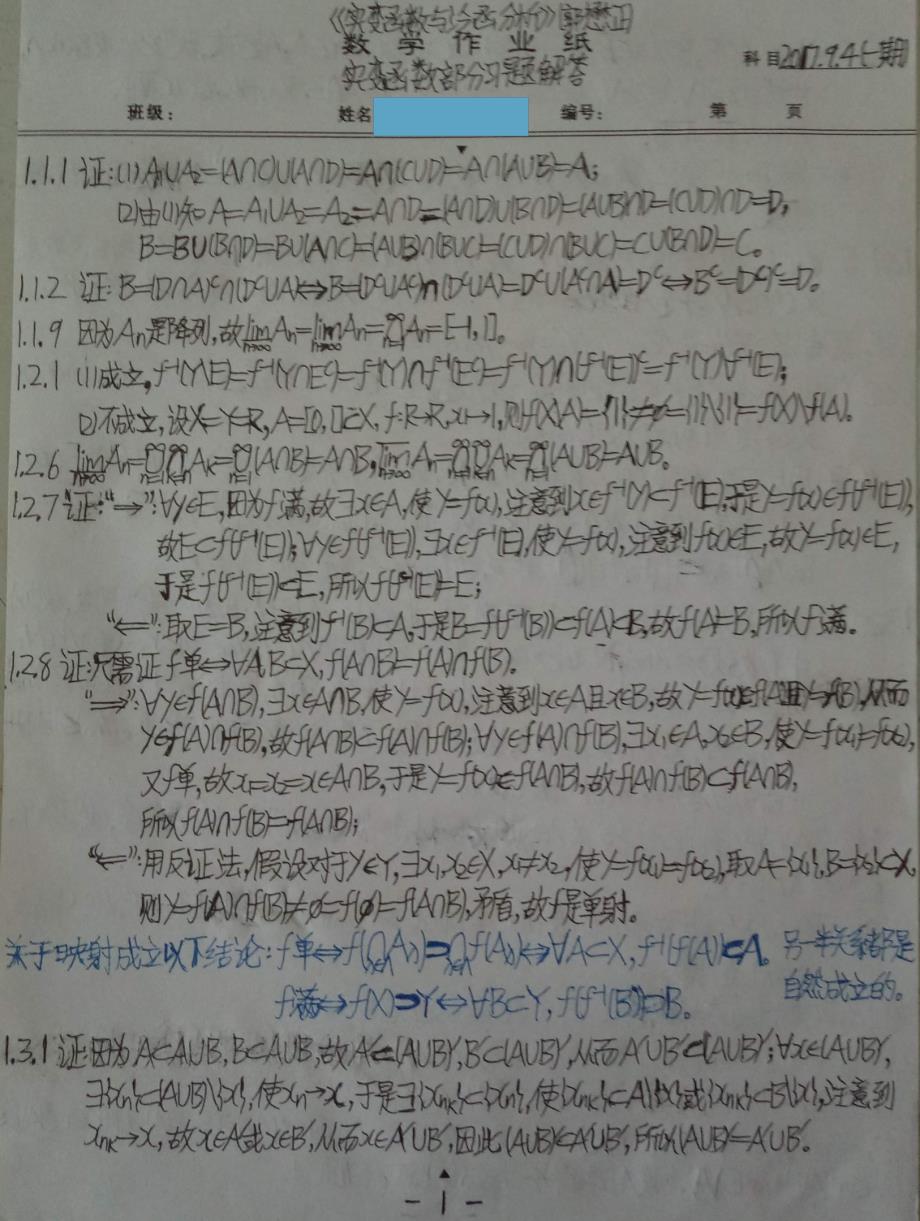 《实变函数与泛函分析》郭懋正
数 学 作 业 纸
科目2017.9.4(一期)
实变函数部分习题解答
班级： 姓名 编号： 第 页
1.1.1 证:(1) A₁∪A₂=(A∩C)∪(A∩D)=A∩(C∪D)=A∩(A∪B)=A;
(2)由(1)知 A=A₁∪A₂=A₂=A∩D=(A∩D)∪(B∩D)=(A∪B)∩D=(C∪D)∩D=D,
B=B∪(B∩D)=B∪(A∩C)=(A∪B)∩(B∪C)=(C∪D)∩(B∪C)=C∪(B∩D)=C。
1.1.2 证: B=(D∩A)ᶜ∩(Dᶜ∪A)⇔B=(Dᶜ∪Aᶜ)∩(Dᶜ∪A)=Dᶜ∪(Aᶜ∩A)=Dᶜ⇔Bᶜ=(Dᶜ)ᶜ=D。
1.1.9 因为Aₙ是降列,故lim Aₙ=lim Aₙ=∩Aₙ=[-1,1]。
1.2.1 (1)成立。f⁻¹(Y\E)=f⁻¹(Y∩Eᶜ)=f⁻¹(Y)∩f⁻¹(Eᶜ)=f⁻¹(Y)∩(f⁻¹(E))ᶜ=f⁻¹(Y)\f⁻¹(E);
(2)不成立,设X=Y=R, A=[0,1]⊂X, f:R→R,x↦1,则f(X\A)={1}≠∅={1}\{1}=f(X)\f(A)。
1.2.6 lim Aₙ=∪∩Aₖ=∪(A∩B)=A∩B, lim Aₙ=∩∪Aₖ=∩(A∪B)=A∪B。
1.2.7 证:“⇒”:∀y∈E,因为f满,故∃x∈A,使y=f(x),注意到x∈f⁻¹(y)⊂f⁻¹(E),于是y=f(x)∈f(f⁻¹(E)),
故E⊂f(f⁻¹(E));∀y∈f(f⁻¹(E)),∃x∈f⁻¹(E),使y=f(x),注意到f(x)∈E,故y=f(x)∈E,
于是f(f⁻¹(E))⊂E,所以f(f⁻¹(E))=E;
“⇐”:取E=B,注意到f⁻¹(B)⊂A,于是B=f(f⁻¹(B))⊂f(A)⊂B,故f(A)=B,所以f满。
1.2.8 证:只需证f单⇔∀A,B⊂X,f(A∩B)=f(A)∩f(B).
“⇒”:∀y∈f(A∩B),∃x∈A∩B,使y=f(x),注意到x∈A且x∈B,故y=f(x)∈f(A)且y∈f(B),从而
y∈f(A)∩f(B),故f(A∩B)⊂f(A)∩f(B);∀y∈f(A)∩f(B),∃x₁∈A,x₂∈B,使y=f(x₁)=f(x₂),
又f单,故x₁=x₂=x∈A∩B,于是y=f(x)∈f(A∩B),故f(A)∩f(B)⊂f(A∩B),
所以f(A)∩f(B)=f(A∩B);
“⇐”:用反证法,假设对于y∈Y,∃x₁,x₂∈X,x₁≠x₂,使y=f(x₁)=f(x₂),取A={x₁},B={x₂}⊂X,
则y=f(A)∩f(B)≠∅=f(∅)=f(A∩B),矛盾,故f是单射。
关于映射成立以下结论:f单⇔f(∩Aλ)⊃∩f(Aλ)⇔∀A⊂X, f⁻¹(f(A))⊂A。另一半关系都是
自然成立的。
f满⇔f(X)⊃Y⇔∀B⊂Y, f(f⁻¹(B))⊃B。
1.3.1 证:因为A⊂A∪B,B⊂A∪B,故A′⊂(A∪B)′,B′⊂(A∪B)′,从而A′∪B′⊂(A∪B)′;∀x∈(A∪B)′,
∃{xₙ}⊂(A∪B)\{x},使xₙ→x,于是∃{xₙₖ}⊂{xₙ},使{xₙₖ}⊂A\{x}或{xₙₖ}⊂B\{x},注意到
xₙₖ→x,故x∈A′或x∈B′,从而x∈A′∪B′,因此(A∪B)′⊂A′∪B′,所以(A∪B)′=A′∪B′。
-1-